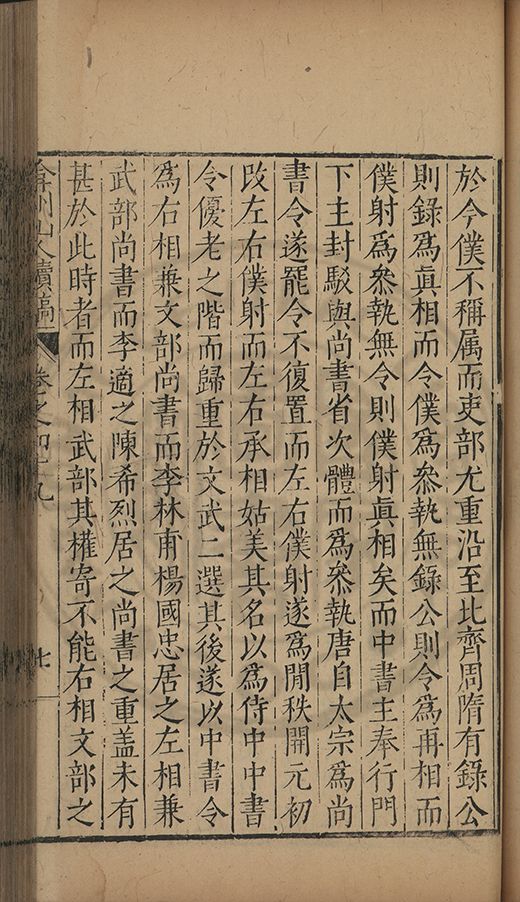 於今僕不稱属而吏部尤重沿至北齊周隋有錄公
則錄爲眞相而令僕爲叅執無錄公則令爲再相而
僕射爲叅執無令則僕射眞相矣而中書主奉行門
下主封駁與尚書省次體而爲叅執唐自太宗爲尚
書令遂罷令不復置而左右僕射遂爲閒秩開元初
改左右僕射而左右承相姑美其名以爲侍中中書
令優老之階而歸重於文武二選其後遂以中書令
爲右相兼文部尚書而李林甫楊國忠居之左相兼
武部尚書而李適之陳希烈居之尚書之重盖未有
甚於此時者而左相武部其權寄不能右相文部之
弇州山人續稿 卷之四十九 七